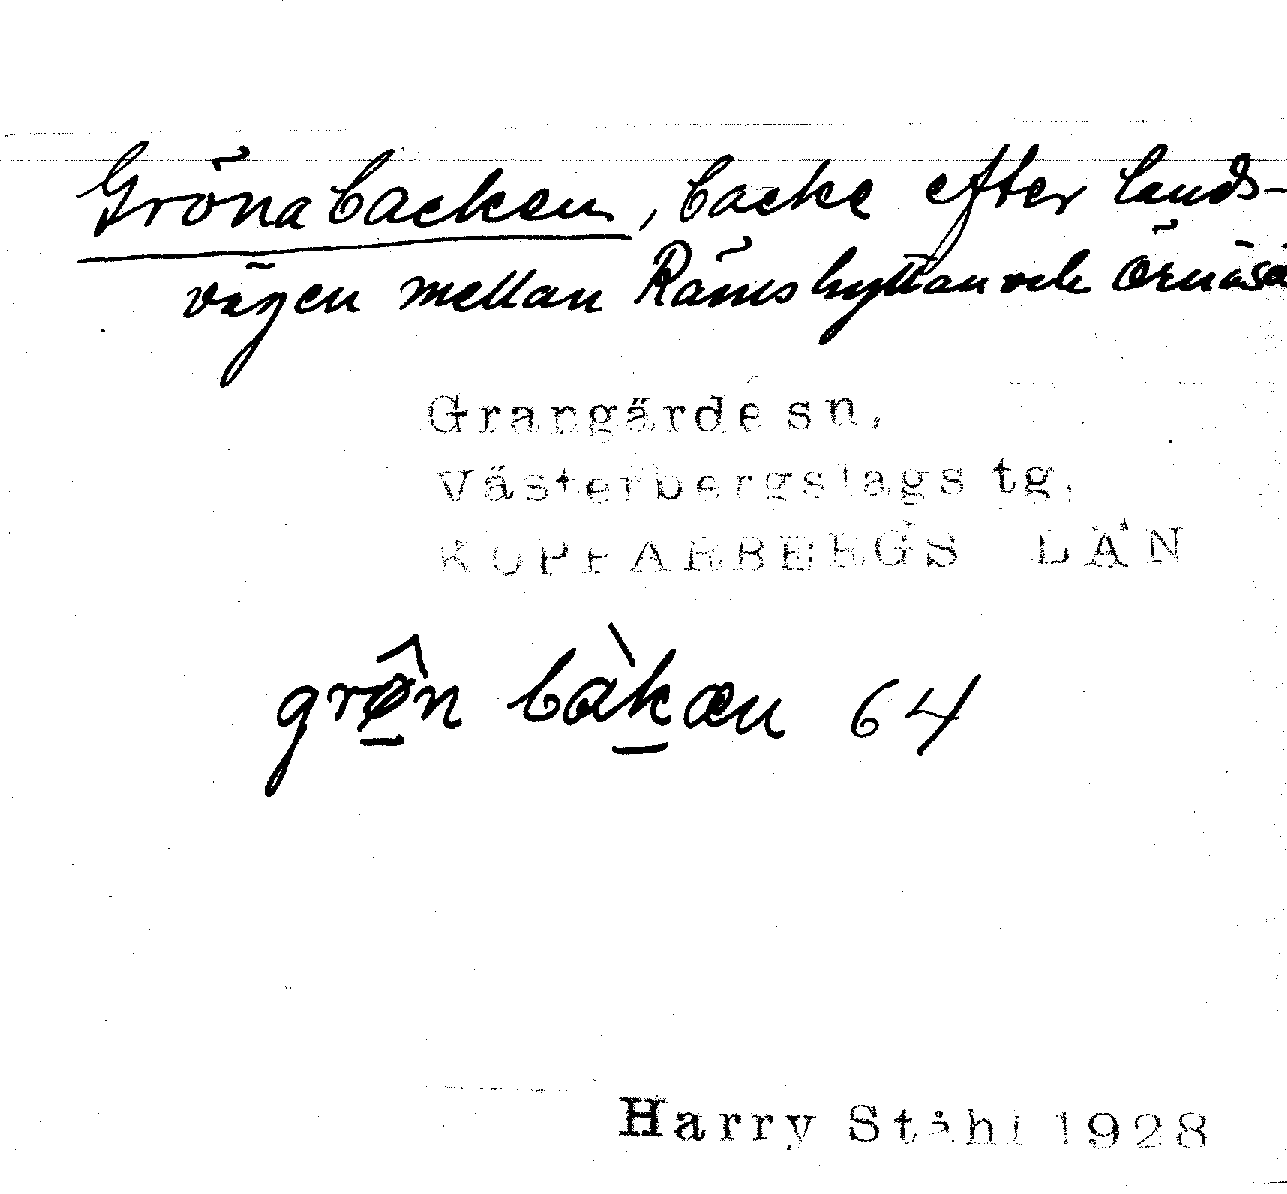 Gröna backen, backe efter lands-
vägen mellan Rämshyttan och
Grangärde sn,
Västerbergslags tg.
KOPPARBERGS LÄN
grø̂n bàkæn 64
Harry Ståhl 1928